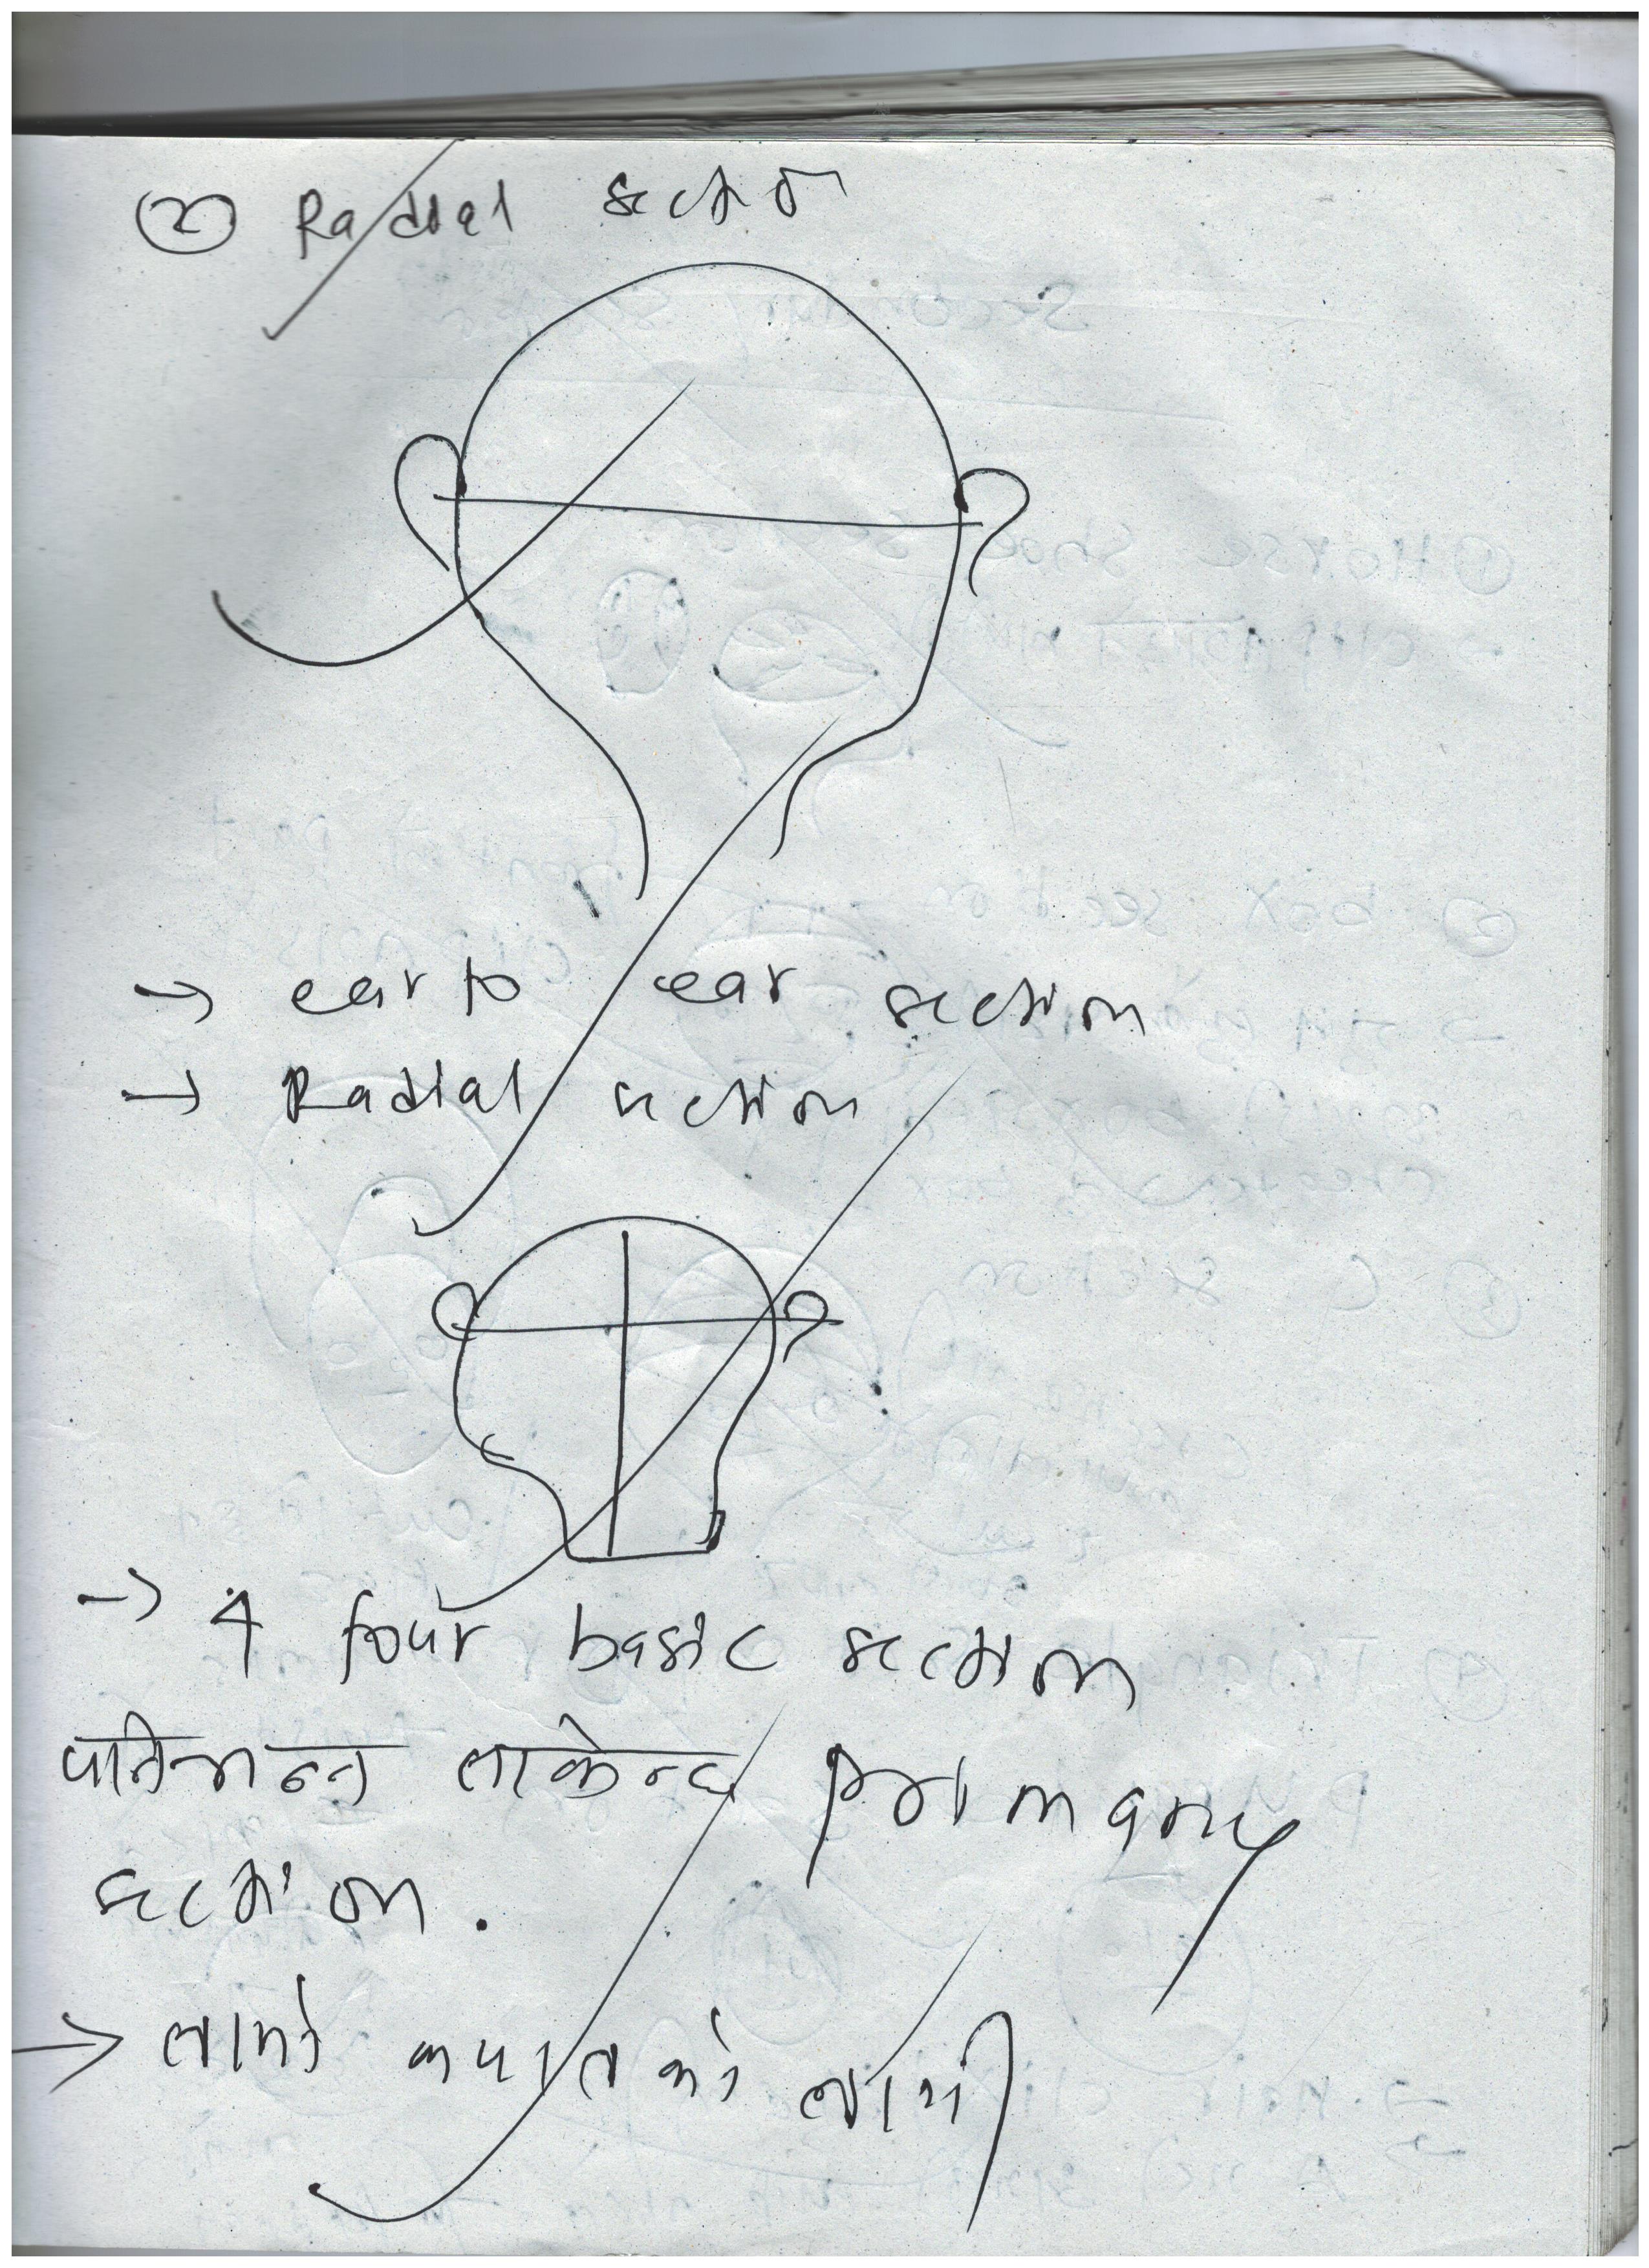 ② Radial section
→ ear to ear section
→ Radial section
→ 4 four basic section
पनि भन्न सकिन्छ primary
section.
→ लामो कपालको लागी